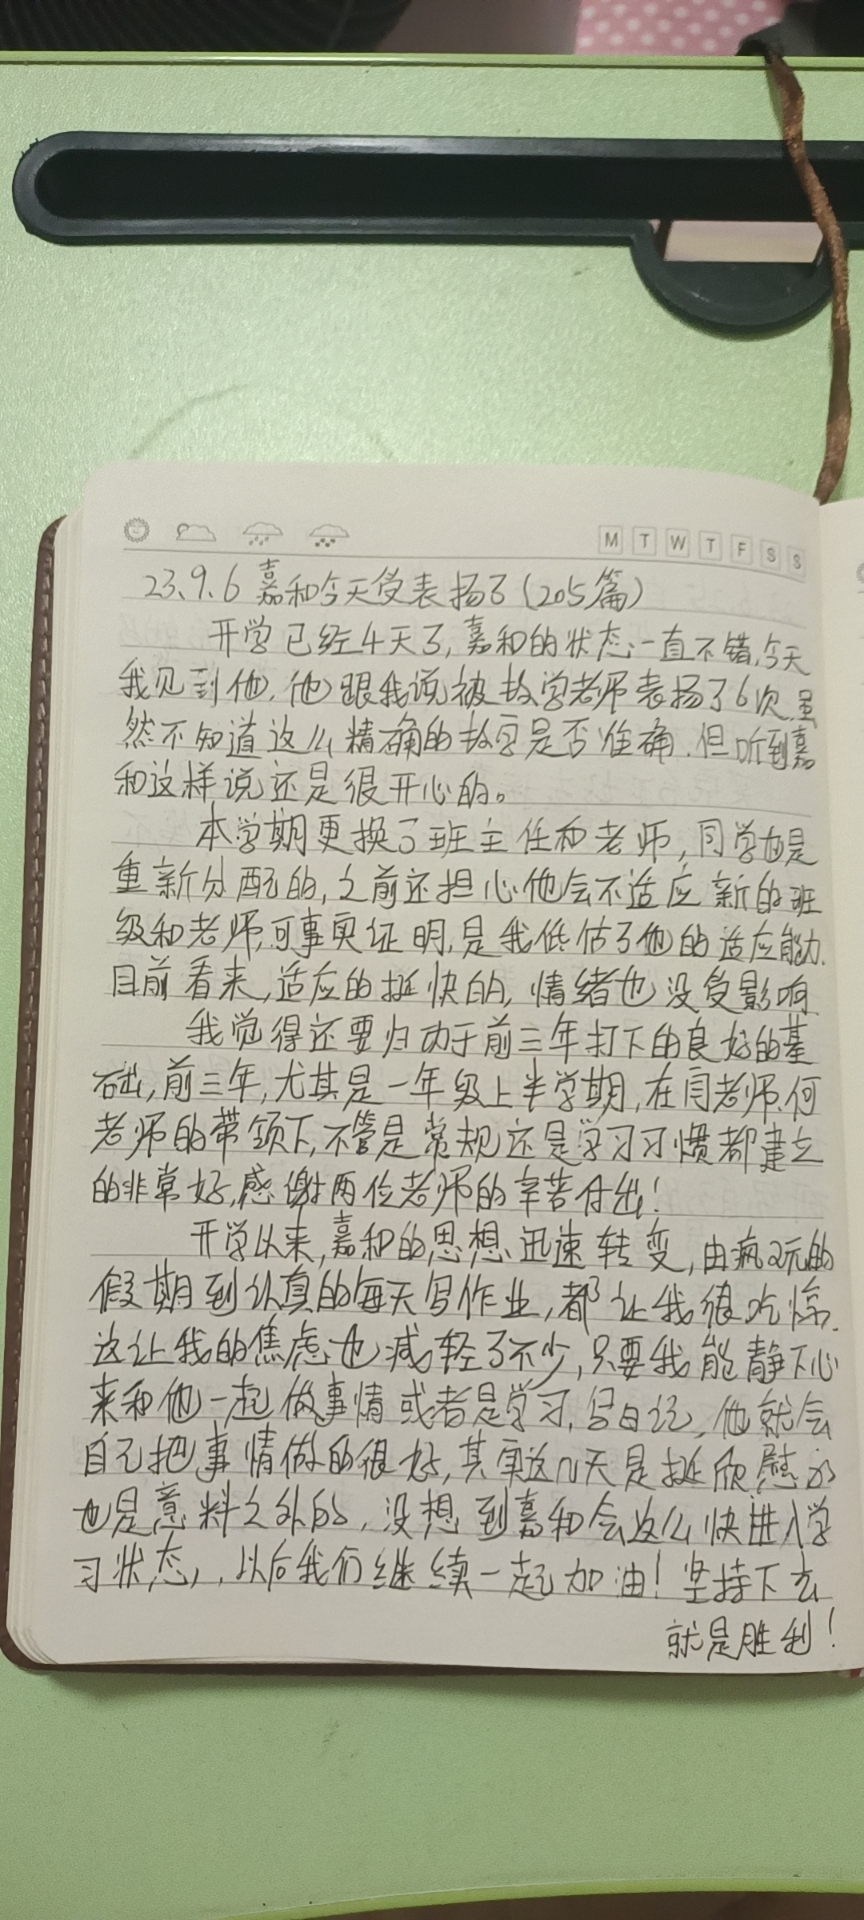 M T W T F S S
23.9.6 嘉和今天受表扬了(205篇)
开学已经4天了,嘉和的状态一直不错,今天
我见到他,他跟我说被数学老师表扬了6次,虽
然不知道这么精确的数字是否准确,但听到嘉
和这样说还是很开心的。
本学期更换了班主任和老师,同学也是
重新分配的,之前还担心他会不适应新的班
级和老师,可事实证明,是我低估了他的适应能力.
目前看来,适应的挺快的,情绪也没受影响
我觉得还要归功于前三年打下的良好的基
础,前三年,尤其是一年级上半学期,在闫老师.何
老师的带领下,不管是常规还是学习习惯都建立
的非常好,感谢两位老师的辛苦付出!
开学以来,嘉和的思想迅速转变,由疯玩的
假期到认真的每天写作业,都让我很吃惊.
这让我的焦虑也减轻了不少,只要我能静下心
来和他一起做事情或者是学习,写日记,他就会
自己把事情做的很好,其实这几天是挺欣慰的
也是意料之外的,没想到嘉和会这么快进入学
习状态,,以后我们继续一起加油!坚持下去
就是胜利!